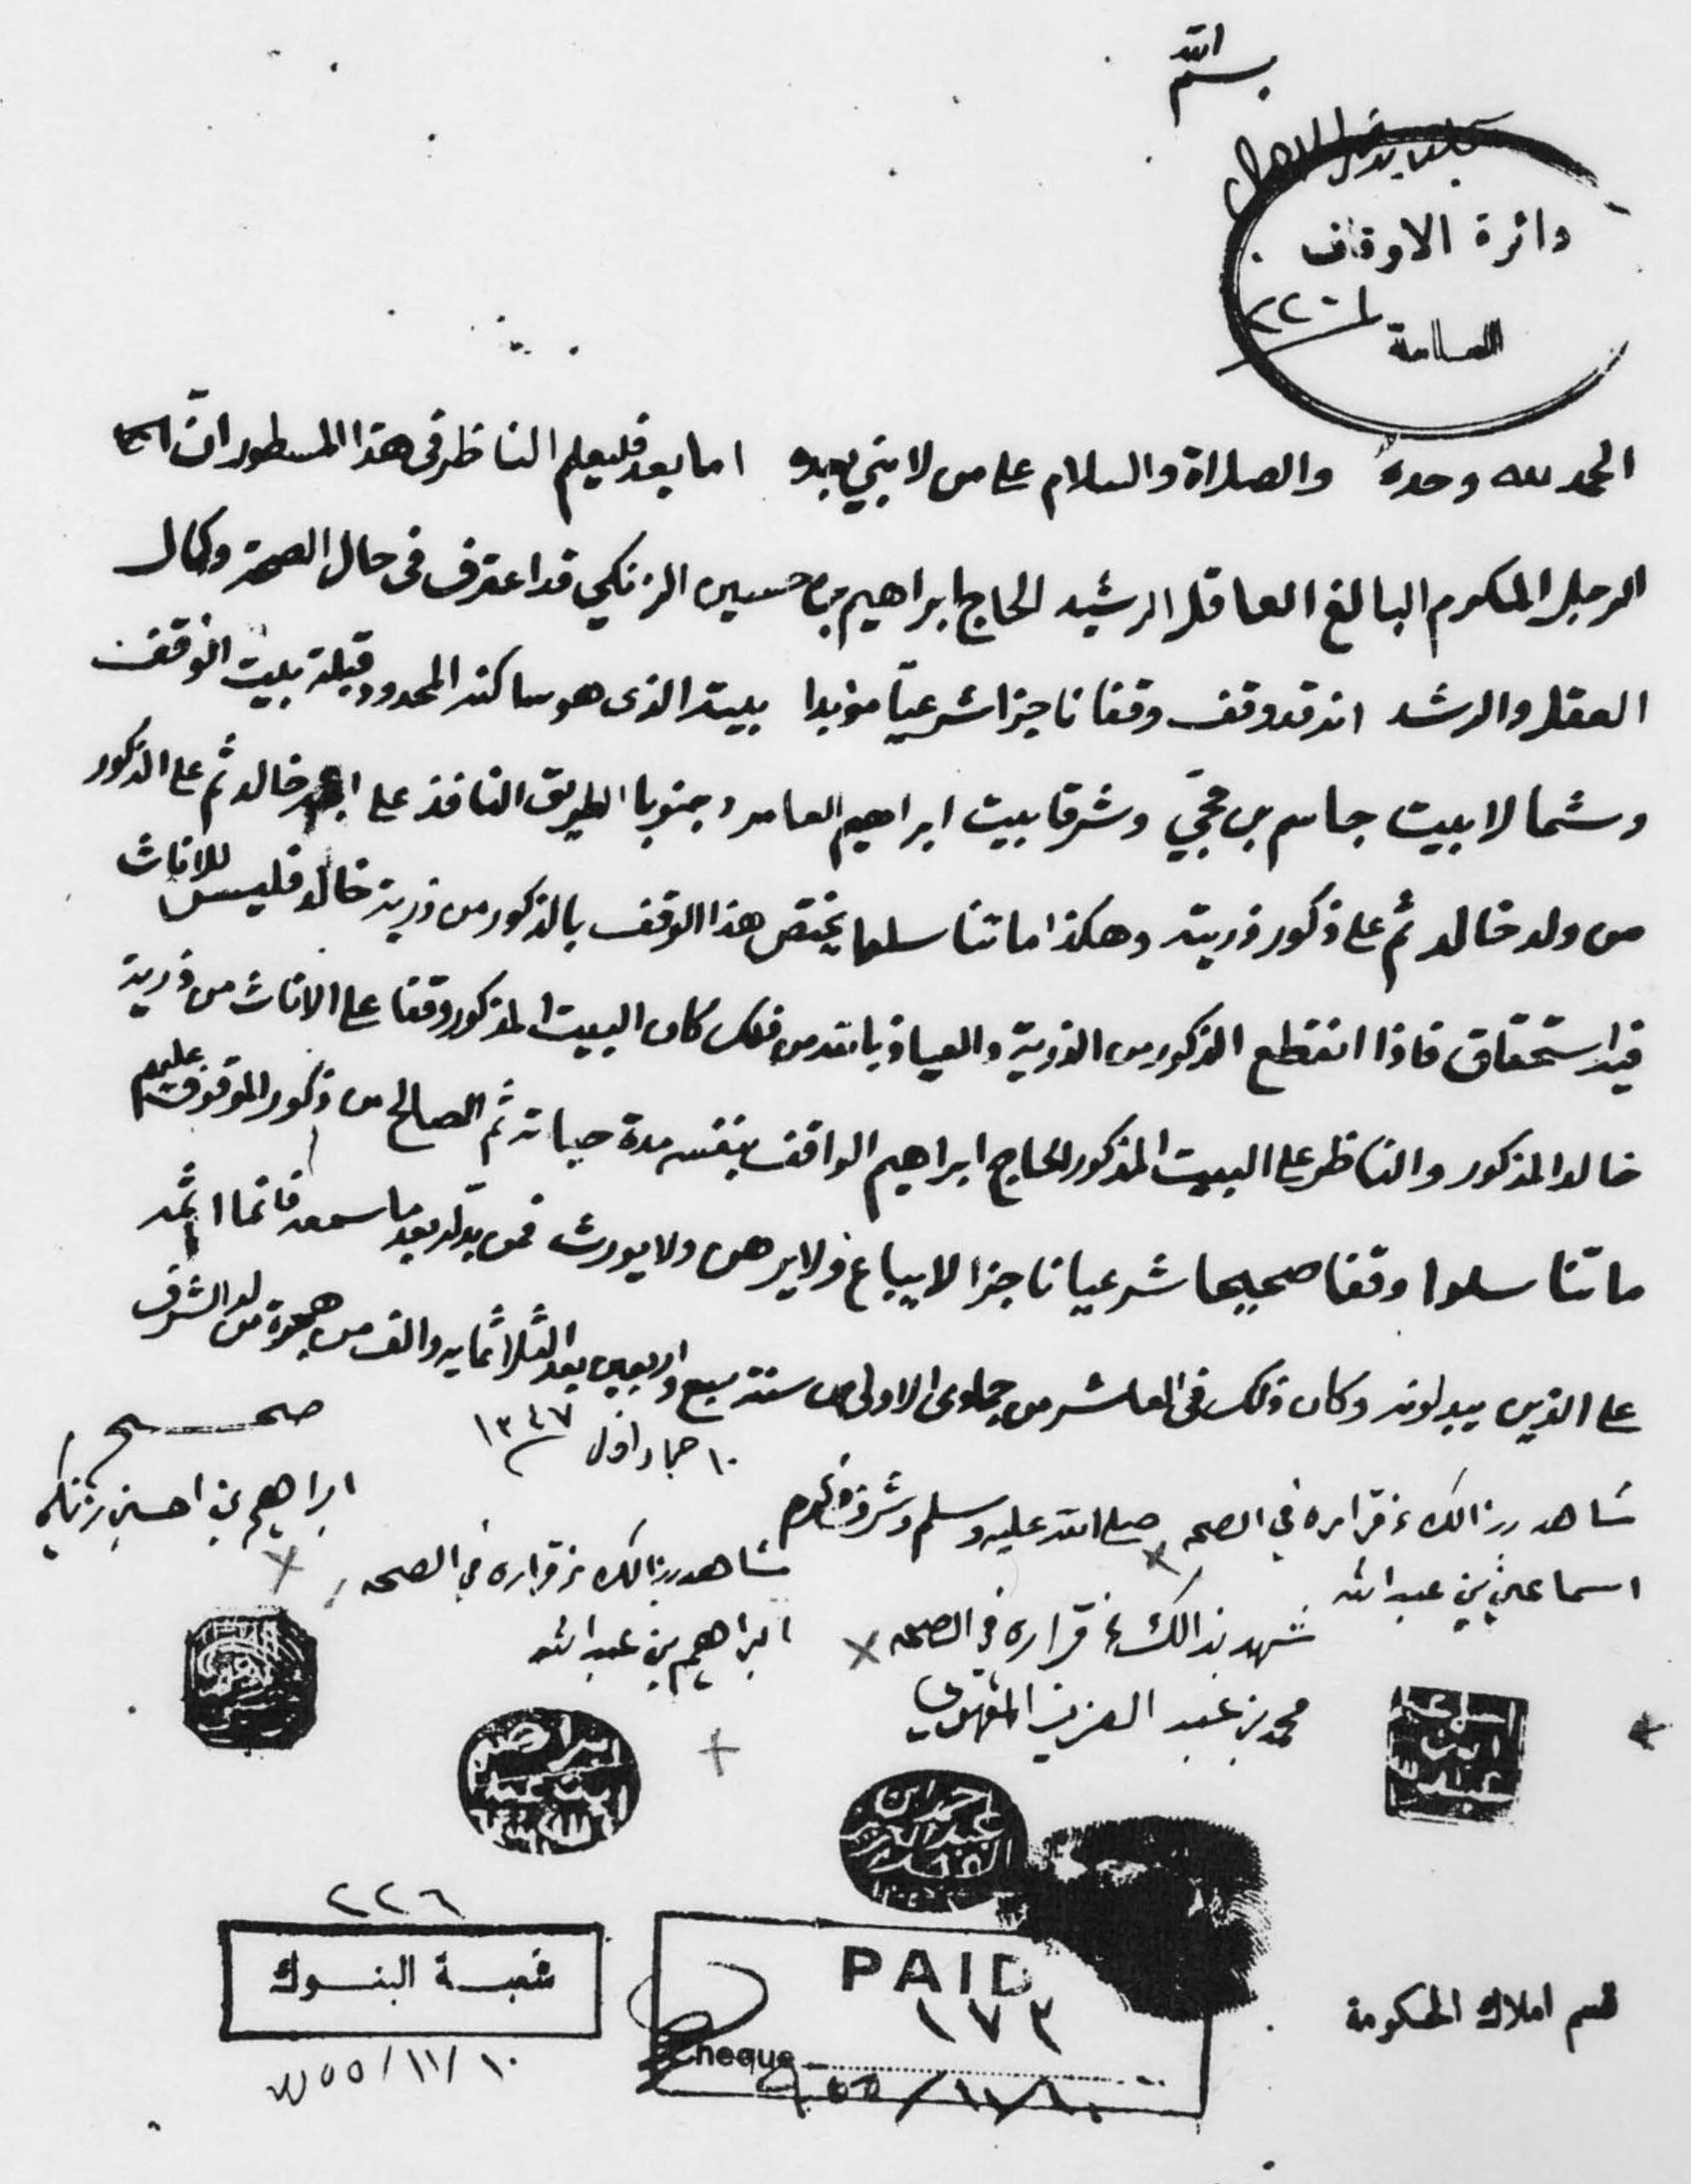 بسم الله
دائرة الاوقاف
العامة
الحمد لله وحده والصلاة والسلام على من لا نبي بعده اما بعد فليعلم الناظر في هذا المسطور ان
الرجل المكرم البالغ العاقل الرشيد الحاج ابراهيم بن حسين الزنكي قد اعترف في حال الصحة وكمال
العقل والرشد انه قد وقف وقفا ناجزا شرعيا مؤبدا بيته الذى هو ساكنه المحدود قبلة بيت الوقف
وشمالا بيت جاسم بن حجي وشرقا بيت ابراهيم العامر وجنوبا الطريق النافذ على خالد ثم على الذكور
من ولد خالد ثم على ذكور ذريته وهكذا ما تناسلوا يختص هذا الوقف بالذكور من ذرية خالد فليس للاناث
فيه استحقاق فاذا انقطع الذكور من الذرية والعياذ بالله من ذلك كان البيت المذكور وقفا على الاناث من ذرية
خالد المذكور والناظر على البيت المذكور الحاج ابراهيم الواقف بنفسه مدة حياته ثم الصالح من ذكور الموقوف عليهم
ما تناسلوا وقفا صحيحا شرعيا ناجزا لا يباع ولا يرهن ولا يورث فمن بدله بعد ما سمعه فانما اثمه
على الذين يبدلونه وكان ذلك في العاشر من جمادى الاولى من سنة سبع واربعين بعد الثلاثمايه والف من هجرة من له الشرف
١٠ جماد اول ١٣٤٧
صحيح
ابراهيم بن احسين زنكي
صلى الله عليه وسلم وشرف وكرم
شاهد بذالك ء قراره في الصحه
اسماعيل بن عبد الله
شاهد بذالك ء قراره في الصحه
ابراهيم بن عبد الله
شهد بذالك ء قراره في الصحه
محمد بن عبد العزيز المقهوي
ابراهيم
ابن عبد
٢٢٦
شعبة البنوك
٥٥/١١/١٠
PAID
١٧٣
Cheque
قسم املاك الحكومة